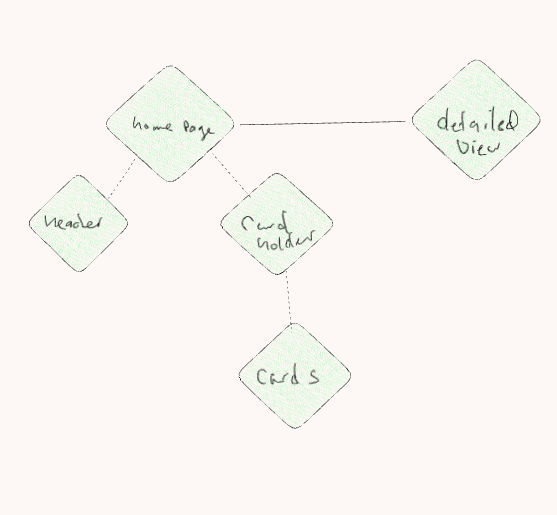 home page
detailed
View
header
Card
holder
Cards